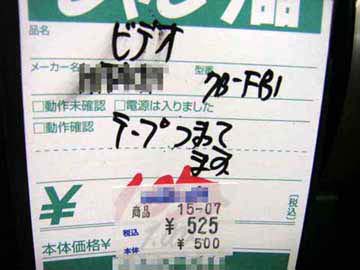 ジャンク品
品名
ビデオ
メーカー名
型番
7B-FB1
□動作未確認 □電源は入りました
□動作確認
テープつまって
ます
¥
[税込]
商品 15-07
税込 ¥ 525
本体 ¥ 500
本体価格¥
[税